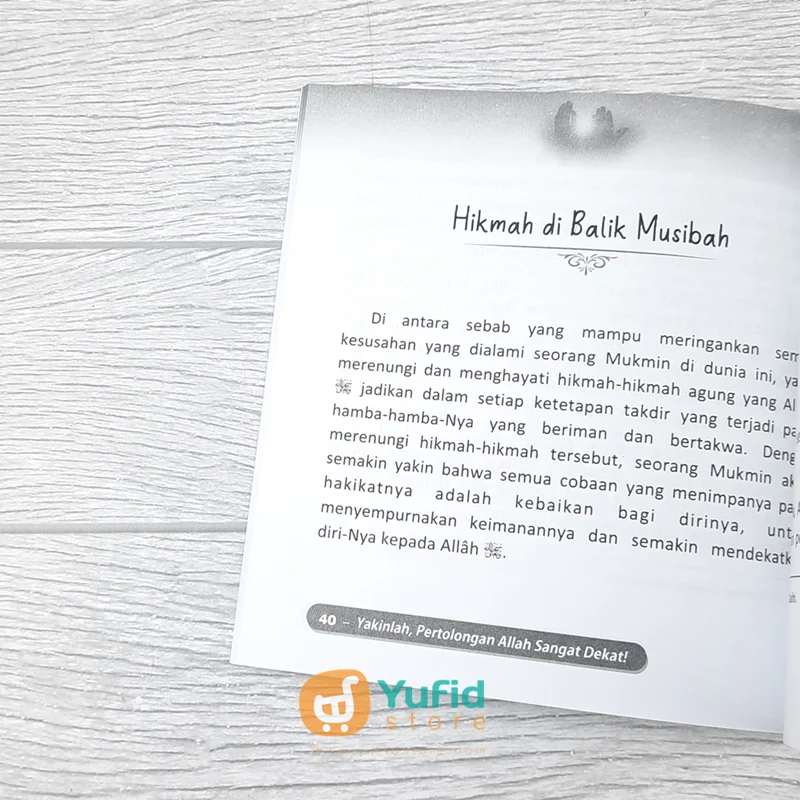 Hikmah di Balik Musibah
Di antara sebab yang mampu meringankan sem
kesusahan yang dialami seorang Mukmin di dunia ini, ya
merenungi dan menghayati hikmah-hikmah agung yang Al
ﷻ jadikan dalam setiap ketetapan takdir yang terjadi pa
hamba-hamba-Nya yang beriman dan bertakwa. Deng
merenungi hikmah-hikmah tersebut, seorang Mukmin ak
semakin yakin bahwa semua cobaan yang menimpanya pa
hakikatnya adalah kebaikan bagi dirinya, unt
menyempurnakan keimanannya dan semakin mendekatk
diri-Nya kepada Allâh ﷻ.
40 – Yakinlah, Pertolongan Allah Sangat Dekat!
Yufid
store